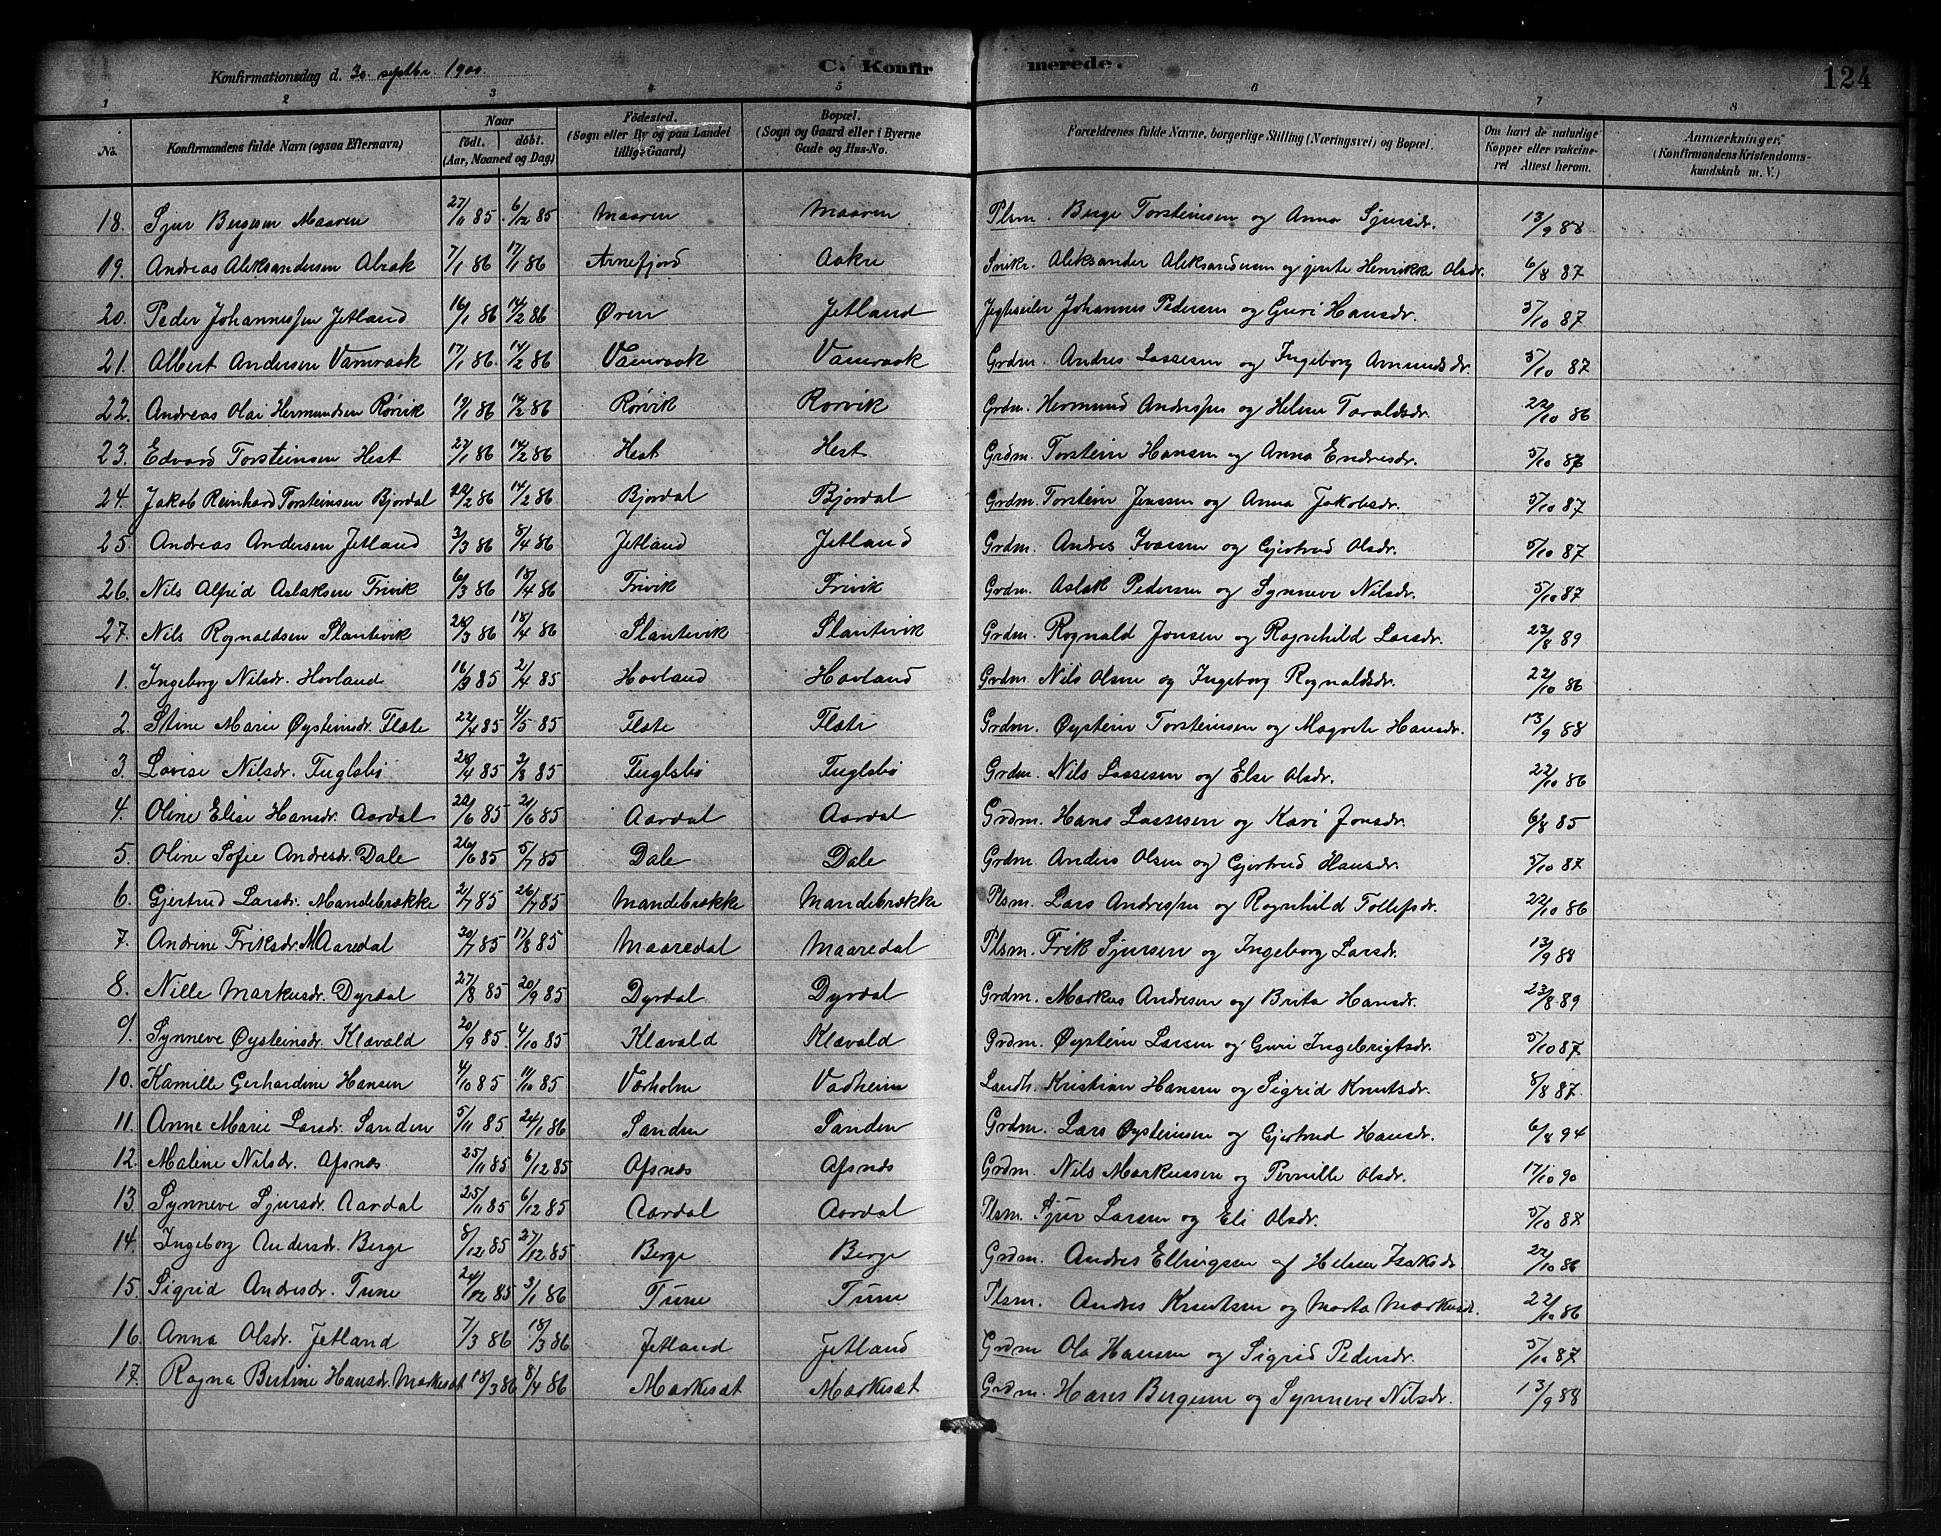 Konfirmationsdag d. 30. septbr. 1900. C. Konfirmerede. 124
1 2 3 4 5 6 7 8
No. Konfirmandens fulde Navn (ogsaa Efternavn) Naar født. døbt. (Aar, Maaned og Dag) Fødested. (Sogn eller By og paa Landet tillige Gaard) Bopæl. (Sogn og Gaard eller i Byerne Gade og Hus-No. Forældrenes fulde Navne, borgerlige Stilling (Næringsvei) og Bopæl. Om havt de naturlige Kopper eller vakcineret Attest herom. Anmærkninger. (Konfirmandens Kristendomskundskab m. V.)
18. Sjur Bergesen Maaren 27/11 85 6/12 85 Maaren Maaren Plsm. Berge Torsteinsen og Anna Sjursdr. 13/9 88
19. Andreas Aleksandersen Abrak 7/1 86 17/1 86 Arnefjord Aakre Snikr. Aleksander Aleksandersen og jente Henrikke Olsdr. 6/8 87
20. Peder Johannessen Jetland 16/1 86 14/2 86 Øren Jetland Jegteseiler Johannes Pedersen og Guri Hansdr. 5/10 87
21. Albert Andersen Vamraak 17/1 86. 14/2 86 Vamraak Vamraak Grdm. Andres Lassesen og Ingeborg Amundsdr. 5/10 87
22. Andreas Olai Hermundsen Rørvik 19/1 86 14/2 86 Rørvik Rørvik Grdm. Hermund Andressen og Helene Taraldsdr. 22/10 86
23. Edvard Torsteinsen Hest 27/1 86 14/2 86 Hest Hest Grdm. Torstein Hansen og Anna Endresdr. 5/10 87
24. Jakob Reinhard Torsteinsen Bjordal 2/2 86 14/2 86 Bjordal Bjordal Grdm. Torstein Jenssen og Anna Jakobsdr. 5/10 87
25. Andreas Andersen Jetland 3/3 86 8/4 86 Jetland Jetland Grdm. Andres Ivarsen og Gjertrud Olsdr. 5/10 87
26. Nils Alfrid Aslaksen Frivik 6/3 86 18/4 86 Frivik Frivik Grdm. Aslak Pedersen og Synneve Nilsdr. 5/10 87
27. Nils Rognaldsen Slantevik 28/3 86 18/4 86 Slantevik Slantevik Grdm. Rognald Jonsen og Ragnhild Larsdr. 23/8 89
1. Ingeborg Nilsdr. Hovland 16/3 85 2/4 85 Hovland Hovland Grdm. Nils Olsen og Ingeborg Rognaldsdr. 22/10 86
2. Stine Marie Øysteinsdr. Flæte 22/4 85 4/5 85 Flæte Flæte Grdm. Øystein Torsteinsen og Magrete Hansdr. 13/9 88
3. Lovise Nilsdr. Fuglsbø 28/4 85 3/8 85 Fuglsbø Fuglsbø Grdm. Nils Lassesen og Else Olsdr. 22/10 86
4. Oline Elise Hansdr. Aardal 2/6 85 21/6 85 Aardal Aardal Grdm. Hans Lassesen og Kari Jonsdr. 6/8 85
5. Oline Sofie Andresdr. Dale 26/6 85 5/7 85 Dale Dale Grdm. Anders Olsen og Gjertrud Hansdr. 5/10 87
6. Gjertrud Larsdr. Mandebrække 2/7 85 26/7 85 Mandebrække Mandebrække Plsm. Lars Andressen og Ragnhild Tollefsdr. 22/10 86
7. Andrine Eriksdr. Maaredal 20/7 85 17/8 85 Maaredal Maaredal Plsm. Erik Sjursen og Ingeborg Larsdr. 13/9 88
8. Nille Markusdr. Dyrdal 27/8 85 20/9 85 Dyrdal Dyrdal Grdm. Markus Andresen og Brita Hansdr. 23/8 89
9. Synneve Øysteinsdr. Klævald 20/9 85. 4/10 85 Klævald Klævald Grdm. Øystein Larsen og Guri Ingebrigtsdr. 5/10 87
10. Kamille Gerhardine Hansen 4/10 85 11/10 85 Værholm Vadheim Landh. Kristian Hansen og Sigrid Knutsdr. 8/8 87.
11. Anne Marie Larsdr. Sanden 5/11 85 24/1 86 Sanden Sanden Grdm. Lars Øysteinsen og Gjertrud Hansdr. 6/8 94
12. Maline Nilsdr. Ofsnæs 25/11 85 6/12 85 Ofsnæs Ofsnæs Grdm. Nils Markussen og Pernille Olsdr. 17/10 90
13. Synneve Sjursdr. Aardal 25/11 85 6/12 85 Aardal Aardal Plsm. Sjur Larsen og Eli Olsdr. 5/10 87
14. Ingeborg Andersdr. Berge 8/12 85 27/12 85 Berge Berge Grdm. Andres Ellingsen og Helene Isaksdr 22/10 86
15. Sigrid Andresdr. Tune 24/12 85 3/1 86 Tune Tune Plsm. Andres Knutsen og Marta Markusdr. 22/10 86
16. Anna Olsdr. Jetland 7/3 86 18/3 86 Jetland Jetland Grdm Ola Hansen og Sigrid Pedersdr. 5/10 87
17. Ragna Bertine Hansdr. Markesæt 18/3 86 8/4 86 Markesæt Markesæt Grdm. Hans Bergesen og Synneve Nilsdr. 13/9 88